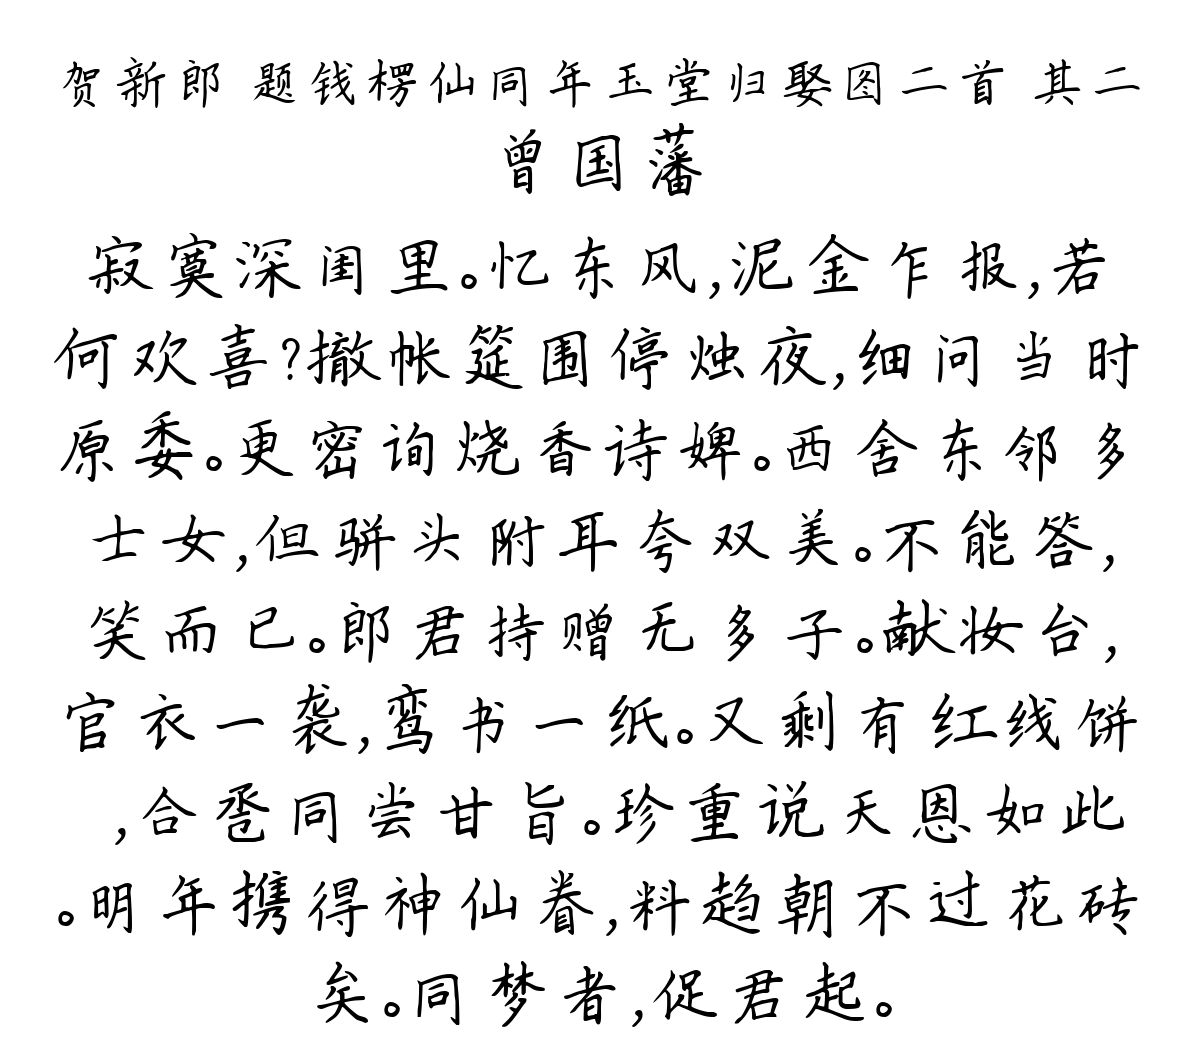 贺新郎 题钱楞仙同年玉堂归娶图二首 其二
曾国藩
寂寞深闺里。忆东风,泥金乍报,若
何欢喜?撤帐筵围停烛夜,细问当时
原委。更密询烧香诗婢。西舍东邻多
士女,但骈头附耳夸双美。不能答,
笑而已。郎君持赠无多子。献妆台,
官衣一袭,鸾书一纸。又剩有红线饼
,合卺同尝甘旨。珍重说天恩如此
。明年携得神仙眷,料趋朝不过花砖
矣。同梦者,促君起。